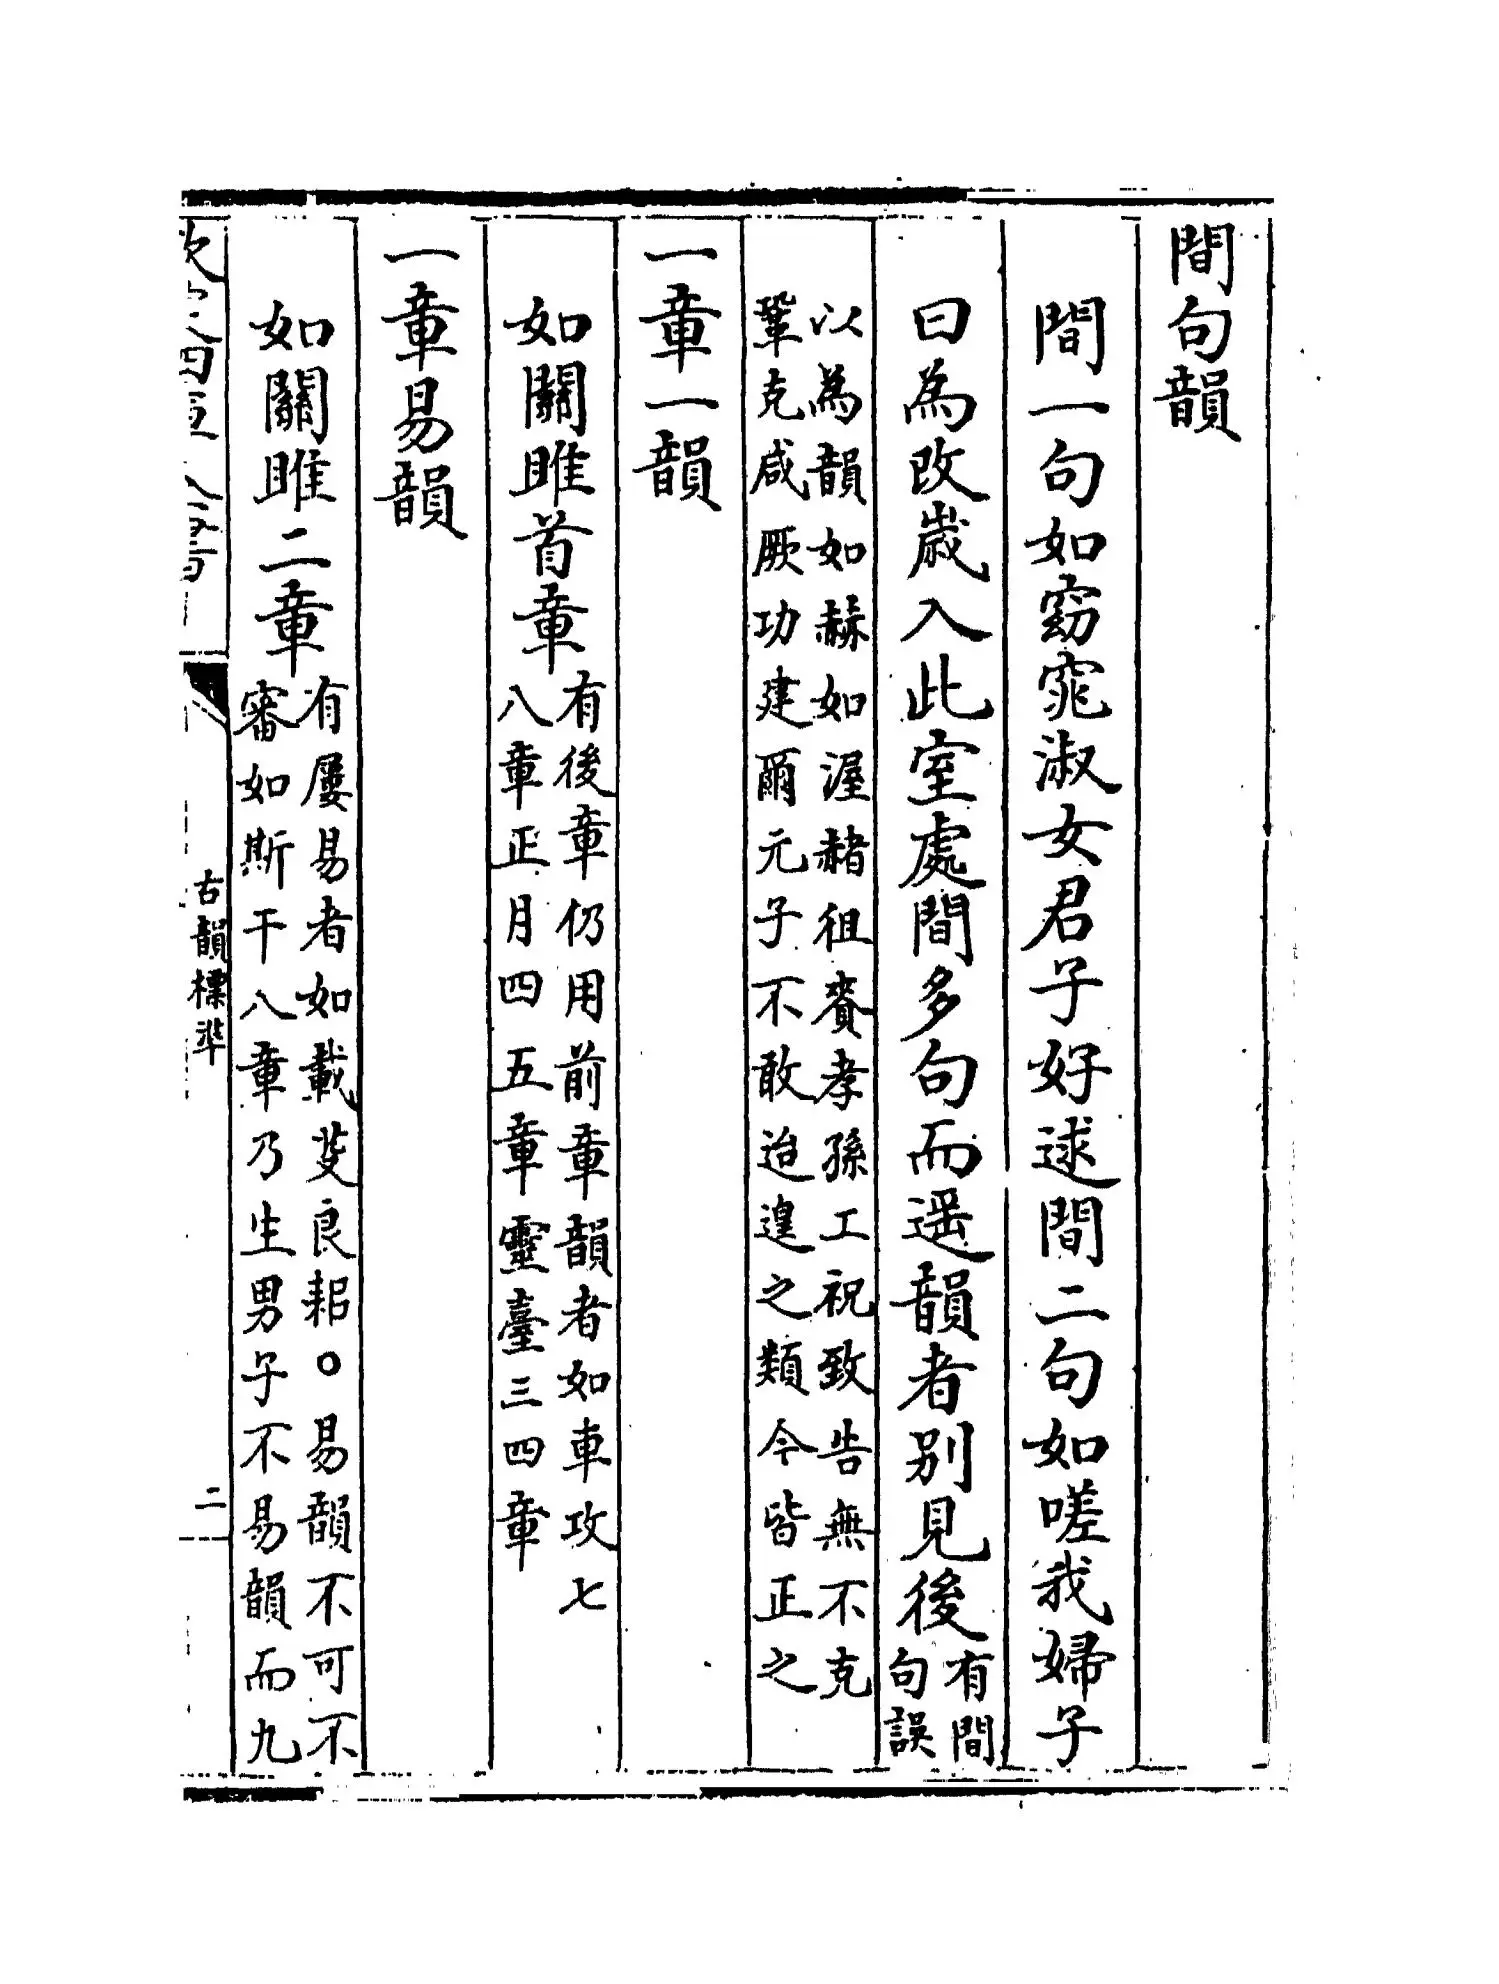 間句韻
間一句如窈窕淑女君子好逑間二句如嗟我婦子
曰為改歲入此室處間多句而遥韻者别見後
有間
句誤
以為韻如赫如渥赭徂賚孝孫工祝致告無不克
鞏克咸厥功建爾元子不敢迨遑之類今皆正之
一章一韻
如關雎首章
有後章仍用前章韻者如車攻七
八章正月四五章靈臺三四章
一章易韻
如關雎二章
有屢易者如載芟良耜○易韻不可不
審如斯干八章乃生男子不易韻而九
欽定四庫全書
古韻標準
二